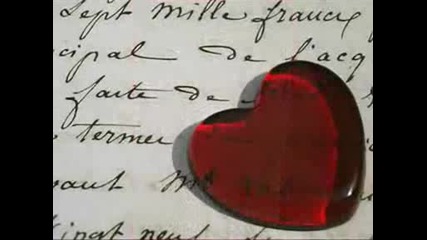 Sept mille francs
cipal de l'acq
faite de
termer
vaut
Vingt neuf